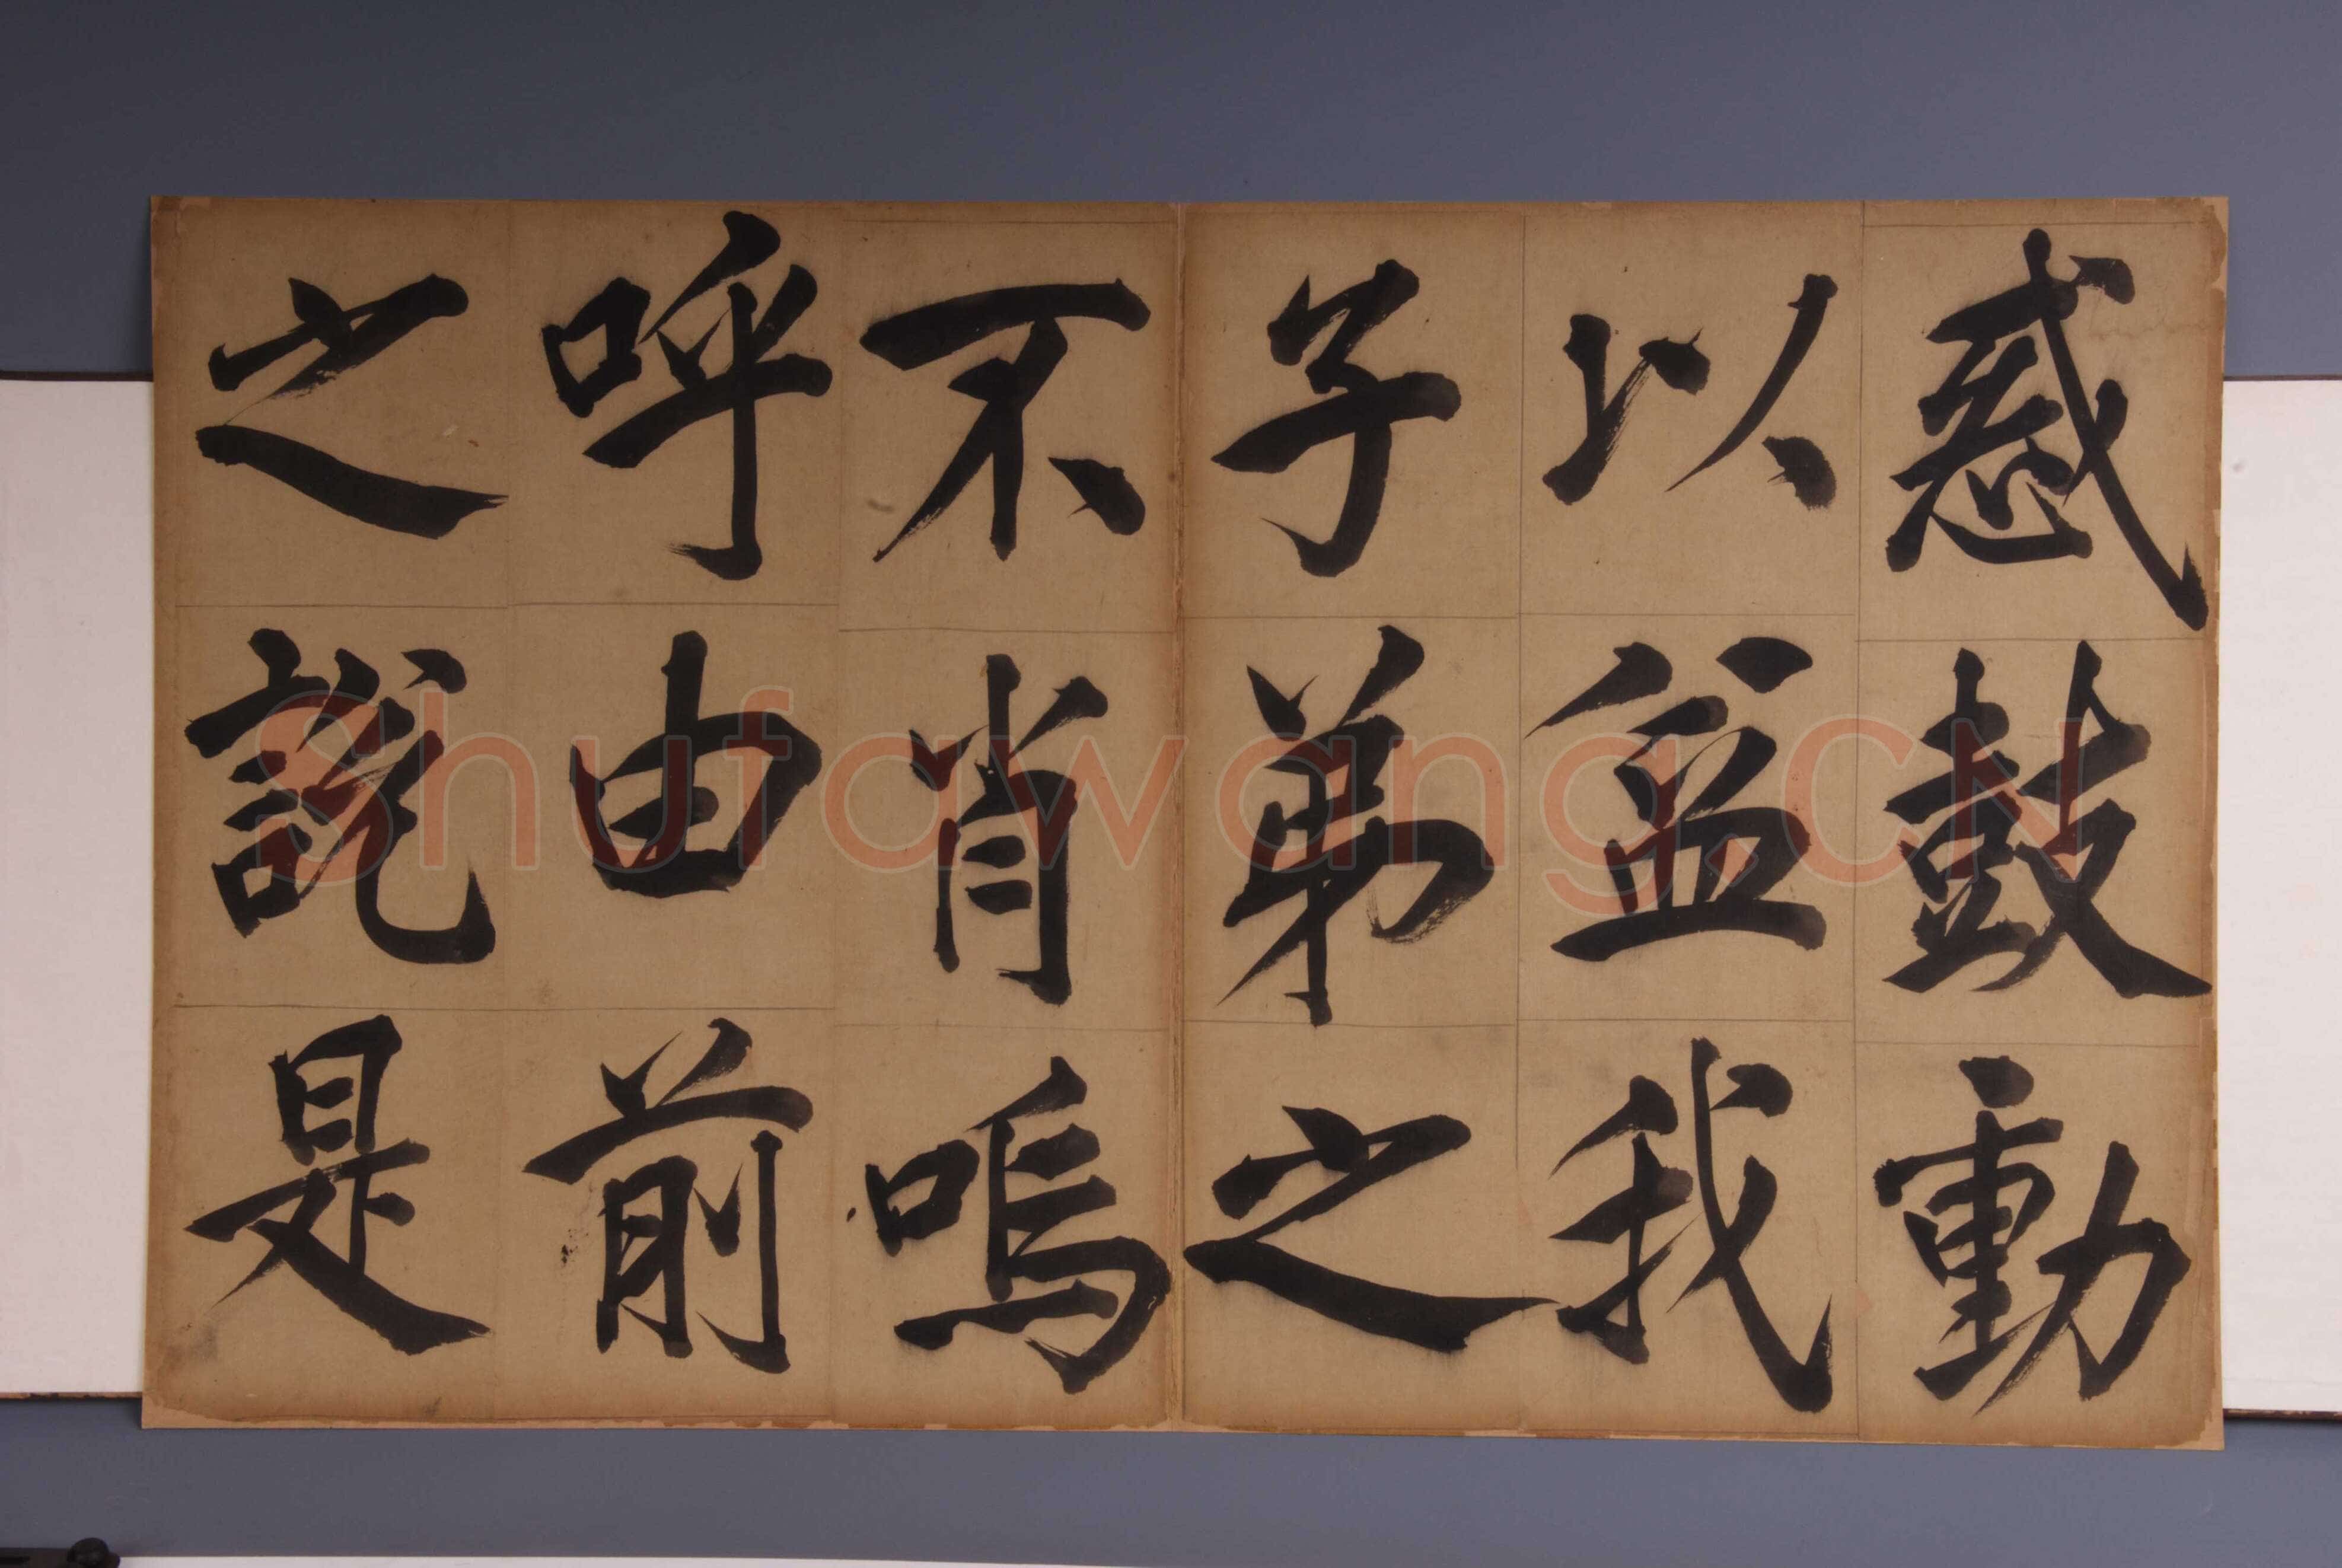 惑鼓動
以益我
子弟之
不肖嗚
呼由前
之說是
Shufawang.CN